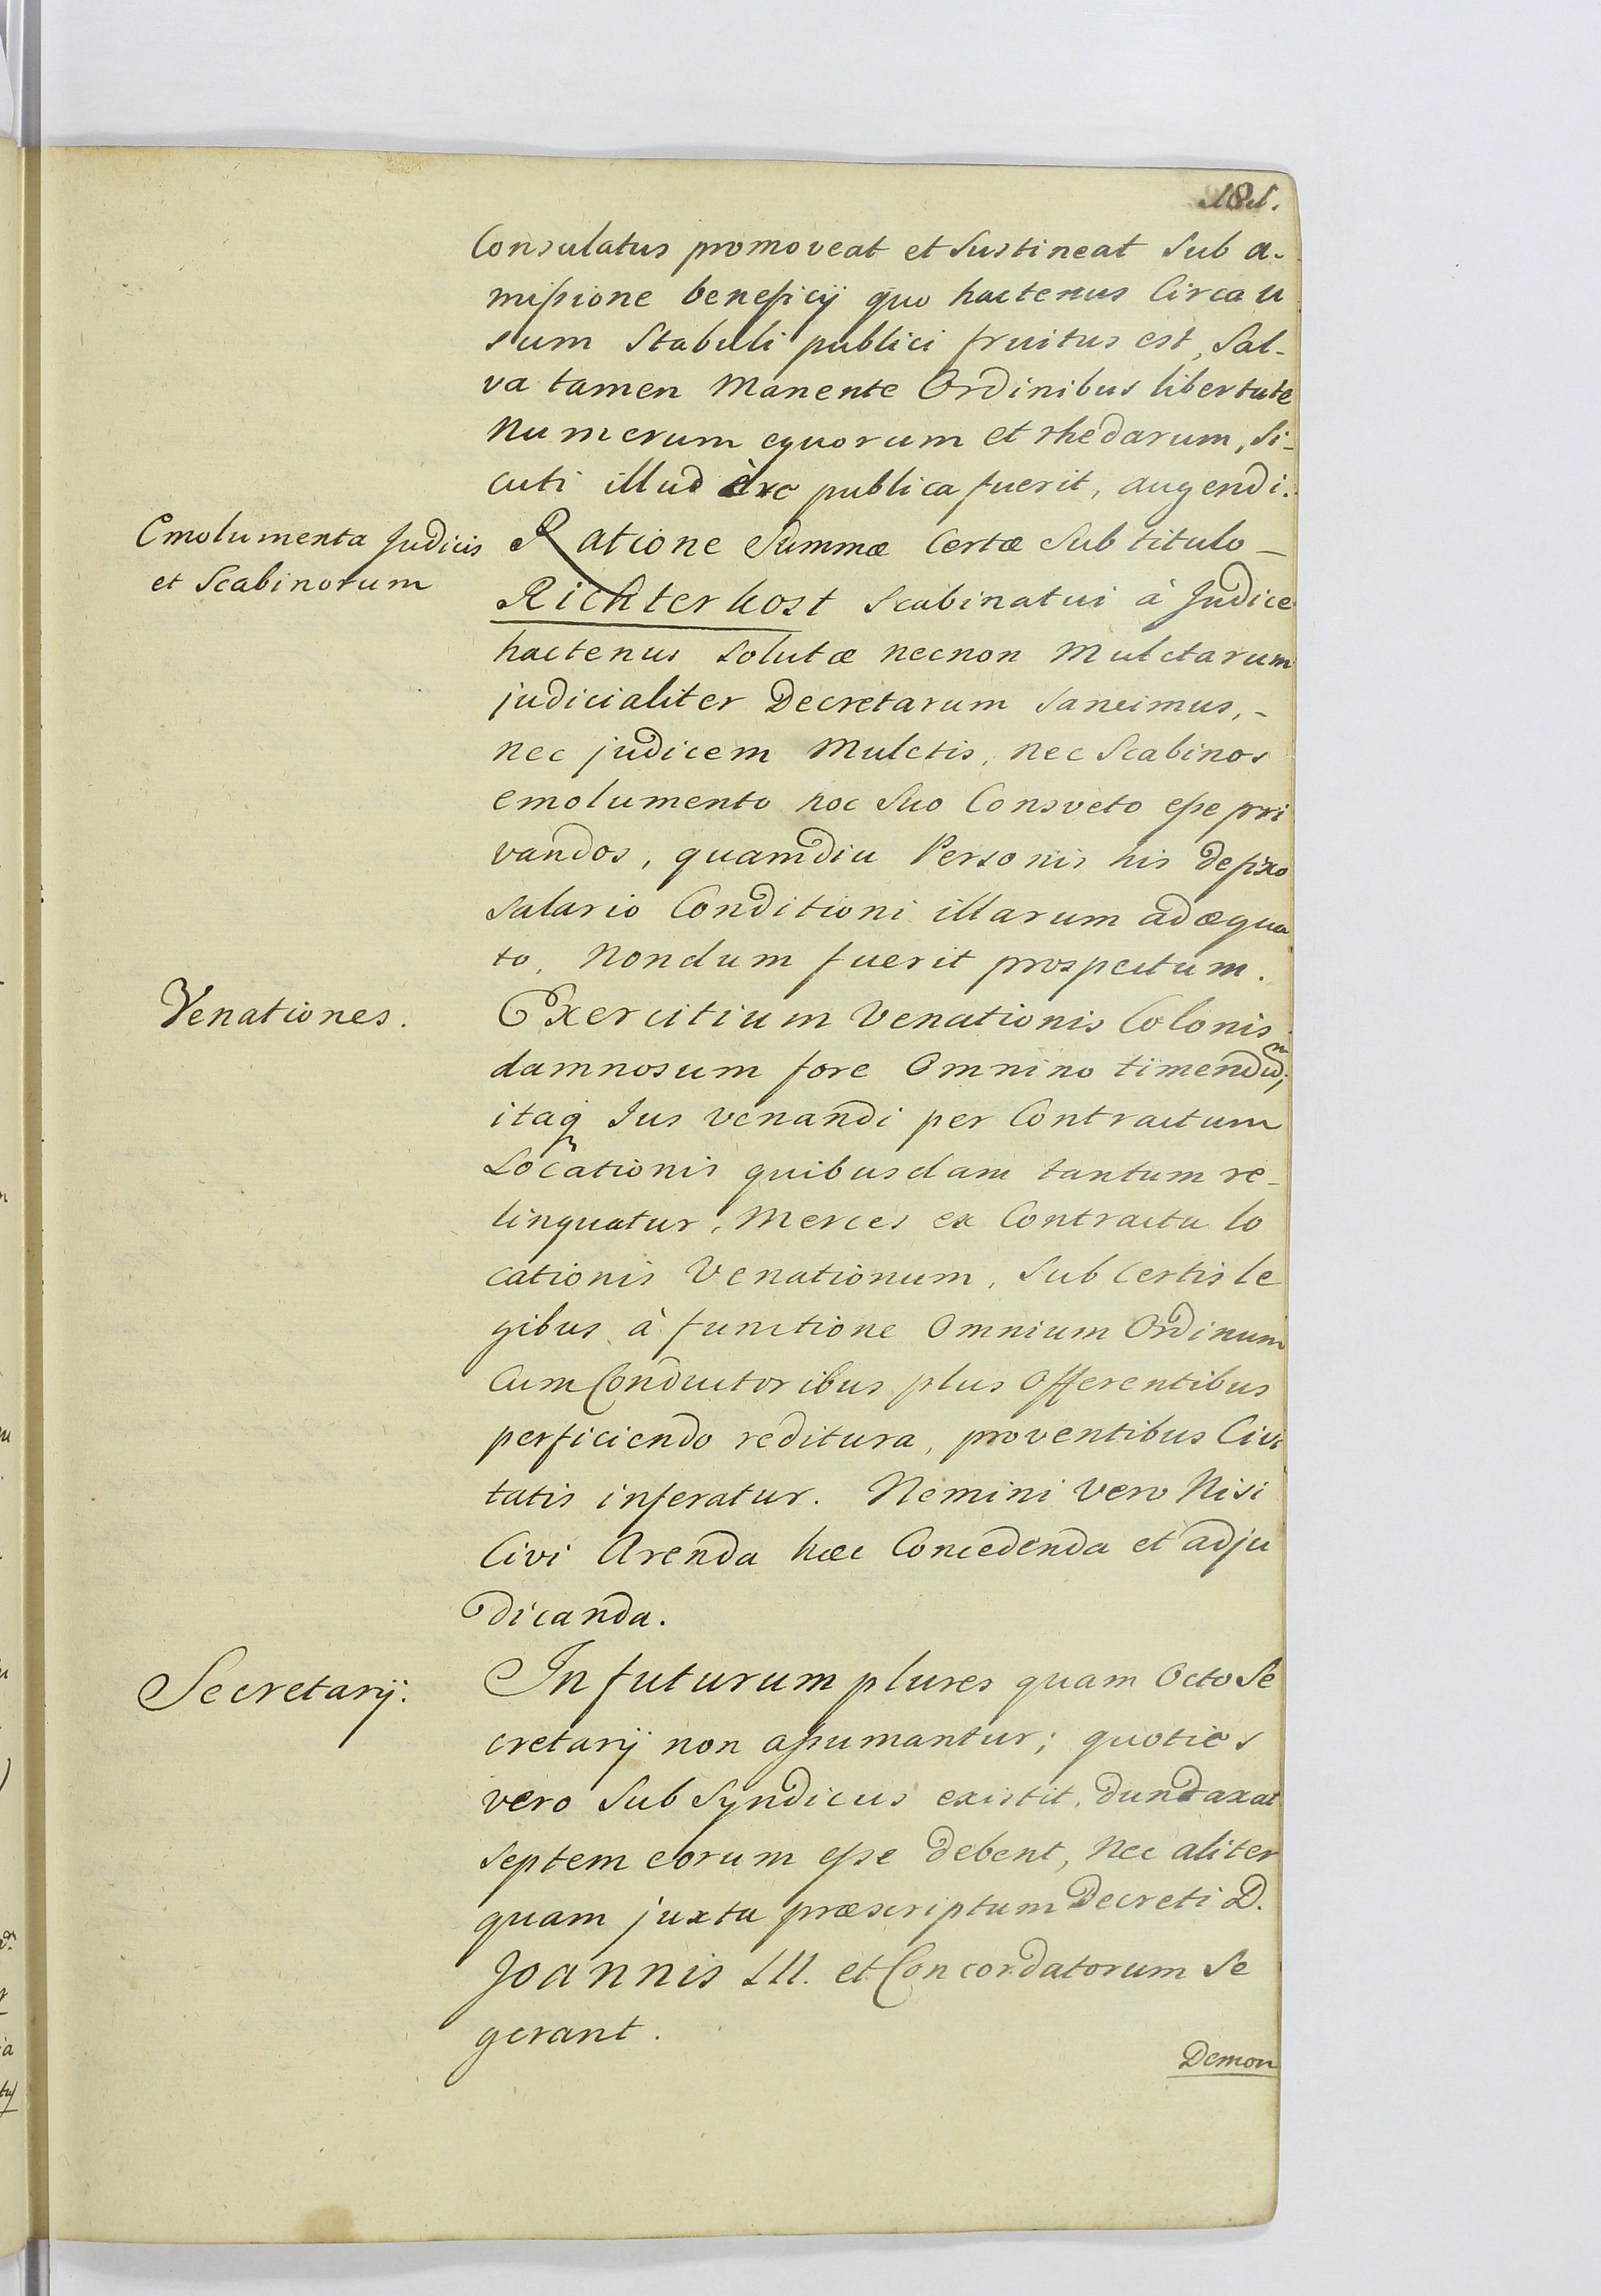 181.
Consulatus promoveat et Sustineat Sub a-
missione beneficij quo hactenus Circa u
sum Stabuli publici fruitus est, Sal-
va tamen Manente Ordinibus libertate
Numerum equorum et rhedarum, Si-
cuti illud è re publica fuerit, augendi.
Emolumenta Judicis
et Scabinorum
Ratione Summæ Certæ Sub titulo -
Richterkost Scabinatui à Judice
hactenus Solutæ necnon Mulctarum
judicialiter Decretarum Sancimus, -
nec judicem Mulctis, nec Scabinos
emolumento hoc Suo Consveto esse pri
vandos, quamdiu Personis his de fixo
Salario Conditioni illarum adæqua
to, Nondum fuerit prospectum.
Venationes.
Exercitium Venationis Colonis
damnosum fore Omnino timendum;
itaq Jus venandi per Contractum
Locationis quibusdam tantum re-
linquatur, Merces ex Contractu lo
cationis Venationum, Sub Certis le
gibus à functione Omnium Ordinum
Cum Conductoribus plus Offerentibus
perficiendo reditura, proventibus Civi
tatis inferatur. Nemini vero Nisi
Civi Arenda hæc Concedenda et adju
dicanda.
Secretarij.
In futurum plures quam Octo Se
cretarij non assumantur; quoties
vero Sub Syndicus existit, duntaxat
Septem eorum esse debent, Nec aliter
quam juxta præscriptum Decreti D.
Joannis III. et Concordatorum Se
gerant.
Demon